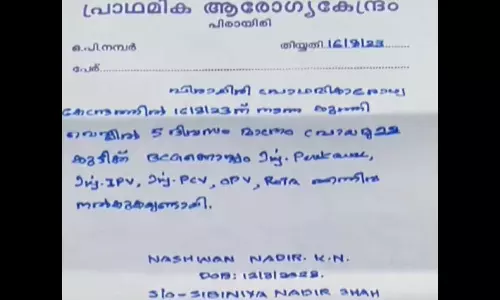 പ്രാഥമിക ആരോഗ്യകേന്ദ്രം
പിരായിരി
ഒ.പി.നമ്പർ തിയ്യതി 16/8/23
പേര്
പിരായിരി പ്രാഥമികാരോഗ്യ
കേന്ദ്രത്തിൽ 16/8/23ന് നടന്ന കുത്തി
വെപ്പിൽ 5 ദിവസം മാത്രം പ്രായമുള്ള
കുട്ടിക്ക് Inj. Pentavac,
Inj. IPV, Inj. PCV, OPV, Rota എന്നിവ
നൽകുകയുണ്ടായി.
NASHWAN NADIR. K.N.
DOB: 12/8/2023.
S/O - SIBINIYA NADIR SHAH